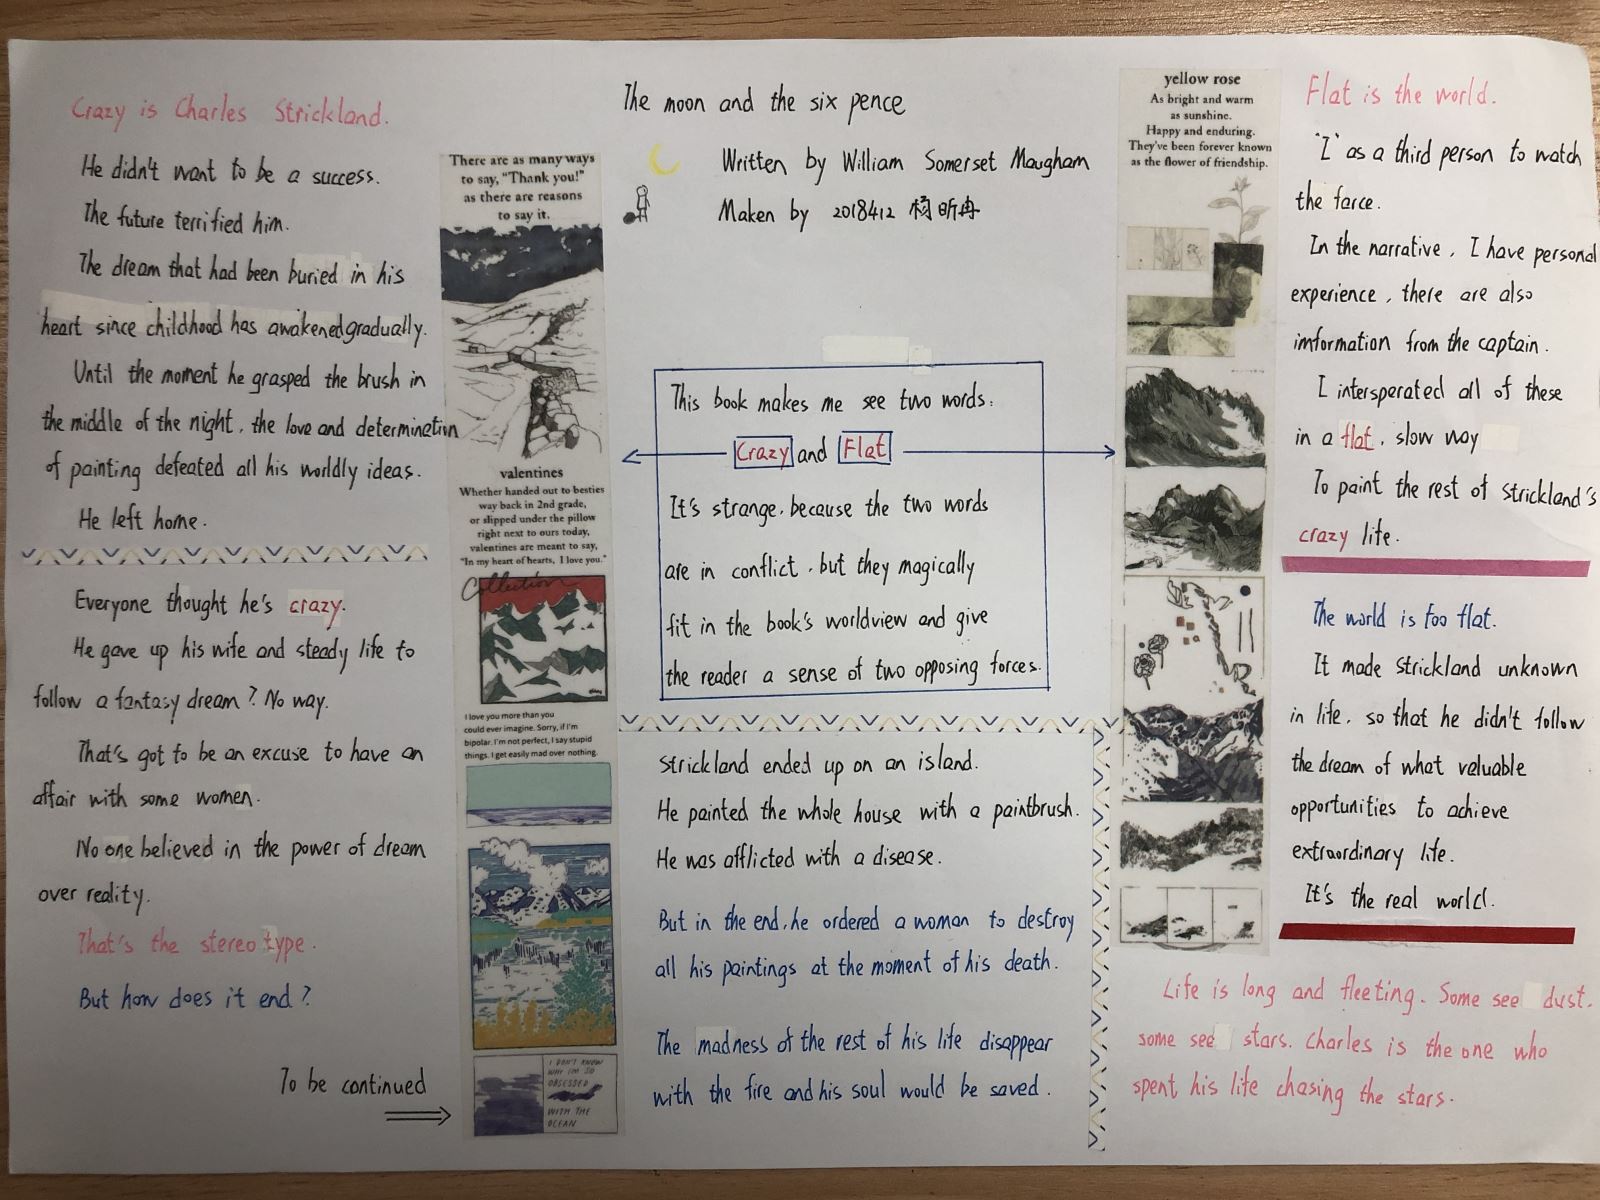 Crazy is Charles Strickland.
He didn't want to be a success.
The future terrified him.
The dream that had been buried in his
heart since childhood has awakened gradually.
Until the moment he grasped the brush in
the middle of the night, the love and determination
of painting defeated all his worldly ideas.
He left home.
Everyone thought he's crazy.
He gave up his wife and steady life to
follow a fantasy dream? No way.
That's got to be an excuse to have an
affair with some women.
No one believed in the power of dream
over reality.
That's the stereotype.
But how does it end?
To be continued
There are as many ways
to say, "Thank you!"
as there are reasons
to say it.
valentines
Whether handed out to besties
way back in 2nd grade,
or slipped under the pillow
right next to ours today,
valentines are meant to say,
"In my heart of hearts, I love you."
Collection
I love you more than you
could ever imagine. Sorry, if I'm
bipolar. I'm not perfect, I say stupid
things. I get easily mad over nothing.
I DON'T KNOW
WHY I'M SO
OBSESSED
WITH THE
OCEAN
The moon and the six pence
Written by William Somerset Maugham
Maken by 2018412 杨昕冉
This book makes me see two words:
Crazy and Flat
It's strange, because the two words
are in conflict, but they magically
fit in the book's worldview and give
the reader a sense of two opposing forces.
Strickland ended up on an island.
He painted the whole house with a paintbrush.
He was afflicted with a disease.
But in the end, he ordered a woman to destroy
all his paintings at the moment of his death.
The madness of the rest of his life disappear
with the fire and his soul would be saved.
yellow rose
As bright and warm
as sunshine.
Happy and enduring.
They've been forever known
as the flower of friendship.
Flat is the world.
"I" as a third person to watch
the farce.
In the narrative, I have personal
experience, there are also
imformation from the captain.
I intersperated all of these
in a flat, slow way
To paint the rest of Strickland's
crazy life.
The world is too flat.
It made Strickland unknown
in life, so that he didn't follow
the dream of what valuable
opportunities to achieve
extraordinary life.
It's the real world.
Life is long and fleeting. Some see dust,
some see stars. Charles is the one who
spent his life chasing the stars.